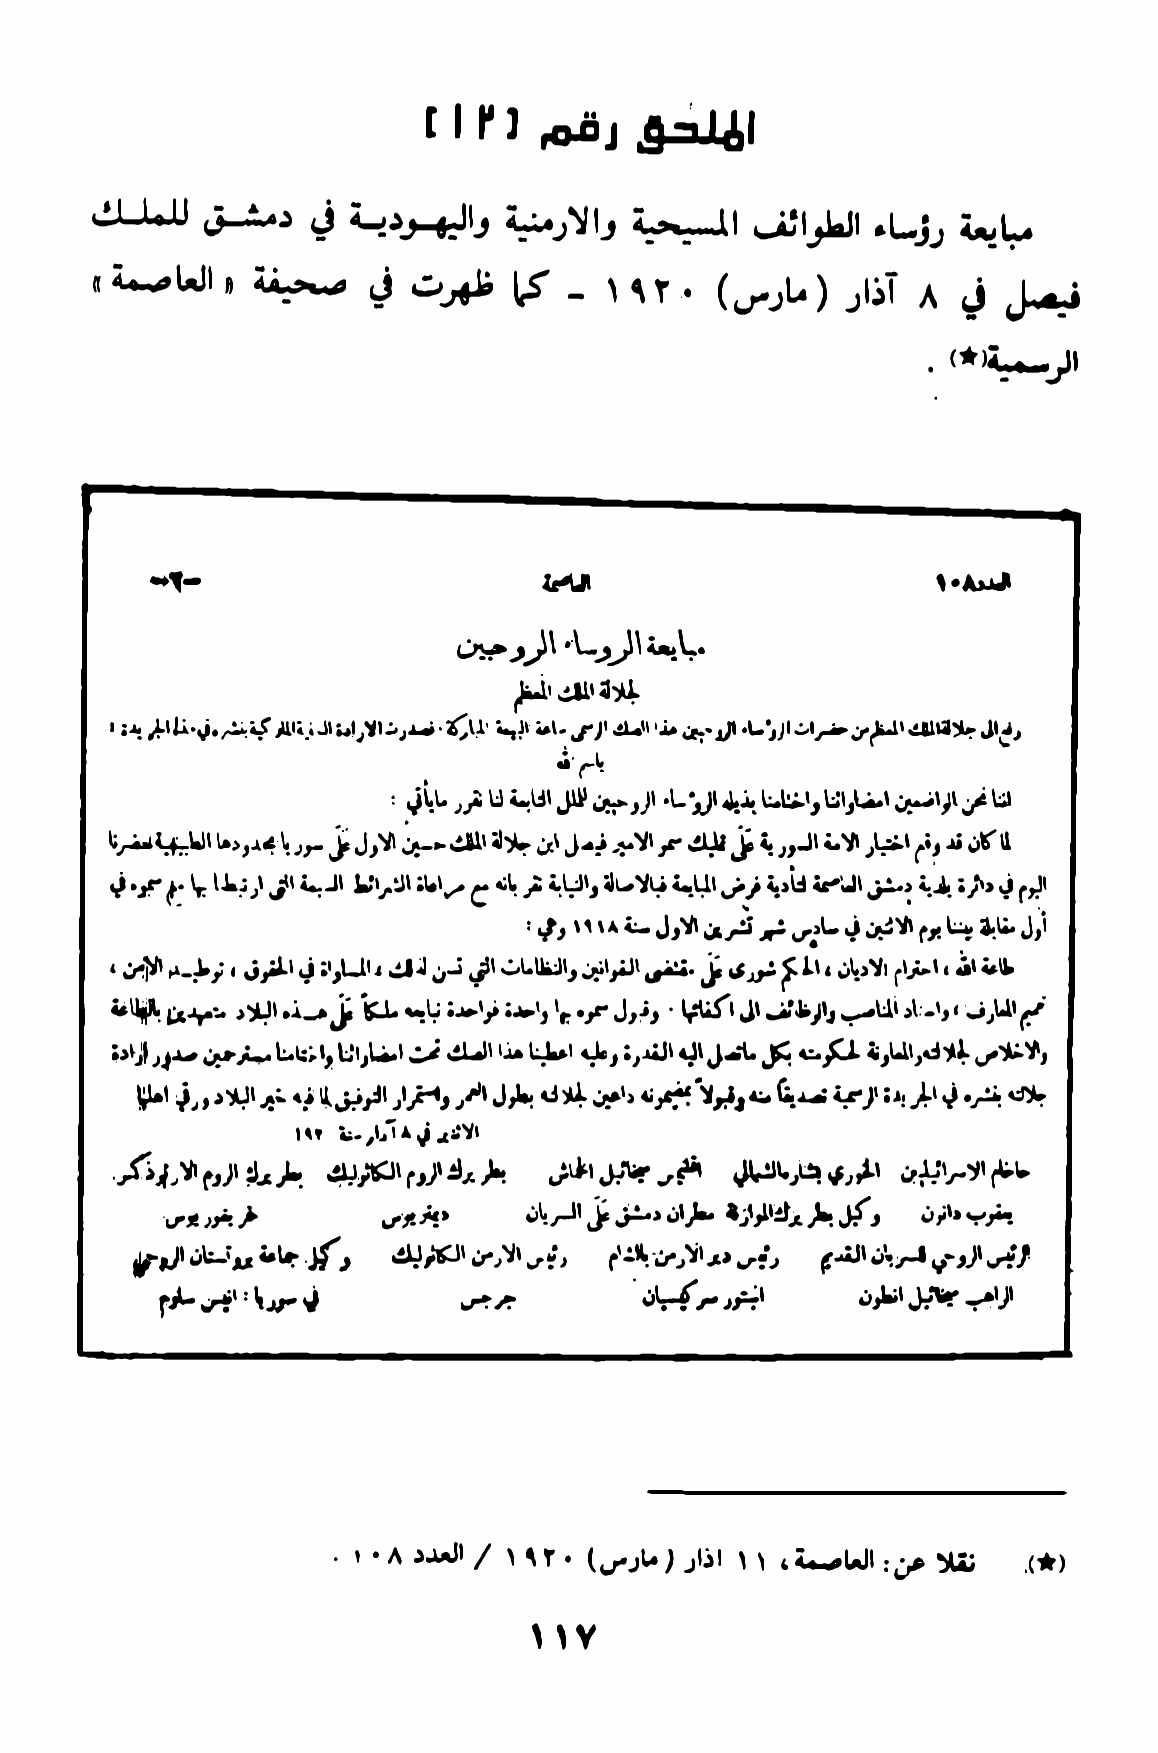 الملحق رقم [١٢]
مبايعة رؤساء الطوائف المسيحية والارمنية واليهودية في دمشق للملك
فيصل في ٨ آذار (مارس) ١٩٢٠ - كما ظهرت في صحيفة «العاصمة»
الرسمية(★) .
العدد ١٠٨
العاصمة
-٦-
مبايعة الروساء الروحيين
لجلالة الملك المعظم
رفع الى جلالة الملك المعظم من حضرات الرؤساء الروحيين هذا الصك الرسمي ساعة البيعة المباركة فصدرت الارادة السنية الملوكية بنشره في هذه الجريدة :
باسم الله
اننا نحن الواضعين امضاواتنا واختامنا بذيله الرؤساء الروحيين للملل التابعة لنا نقرر ما يأتي :
لما كان قد وقع اختيار الامة السورية عَلَى تمليك سمو الامير فيصل ابن جلالة الملك حسين الاول عَلَى سوريا بحدودها الطبيعية لحضرنا
اليوم في دائرة بلدية دمشق العاصمة لتأدية فرض المبايعة فبالاصالة والنيابة نقر بانه مع مراعاة الشرائط السبعة التي ارتبطنا بها مع سموه في
أول مقابلة بيننا يوم الاثنين في سادس شهر تشرين الاول سنة ١٩١٨ وهي :
طاعة الله ، احترام الاديان ، الحكم شورى عَلَى مقتضى القوانين والنظامات التي تسن لذلك ، المساواة في الحقوق ، توطيد الامن ،
تعميم المعارف ، واسناد المناصب والوظائف الى اكفائها . وقبول سموه بها واحدة فواحدة نبايعه ملكاً عَلَى هذه البلاد متعهدين بالطاعة
والاخلاص لجلالته والمعاونة لحكومته بكل ما تصل اليه القدرة وعليه اعطينا هذا الصك تحت امضاواتنا واختامنا مسترحمين صدور ارادة
جلالته بنشره في الجريدة الرسمية تصديقاً منه وقبولاً بمضمونه داعين لجلالته بطول العمر واستمرار التوفيق لما فيه خير البلاد ورقي اهلها
الاثنين في ٨ آذار سنة ١٩٢٠
حاخام الاسرائيليين الخوري بشاره الشمالي اقليمس ميخائيل الخاش بطريرك الروم الكاثوليك بطريرك الروم الارثوذكس
يعقوب دانون وكيل بطريرك الموارنة مطران دمشق عَلَى السريان ديمتريوس غريغوريوس
الرئيس الروحي للسريان القديم رئيس دير الأرمن بالشام رئيس الارمن الكاثوليك وكيل جماعة بروتستان الروحي
الراهب ميخائيل انطون سركيسيان جرجس في سوريا : انيس سلوم
(★). نقلا عن: العاصمة، ١١ اذار (مارس) ١٩٢٠ / العدد ١٠٨ .
١١٧